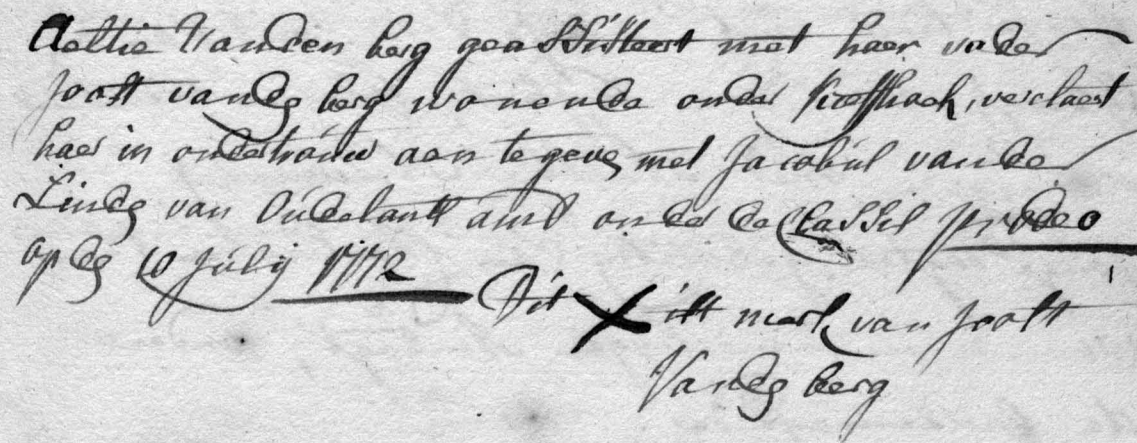 Aeltie Vanden berg geassisteert met haer vader
Joost vanden berg wonende onder verclaert
haer in ondertrouw aen te geven met Jacobus vander
Linden van Oudelants amt onder de Classis pro deo
op den 10 Julij 1772
Dit X ist merk van Joost
Vanden berg